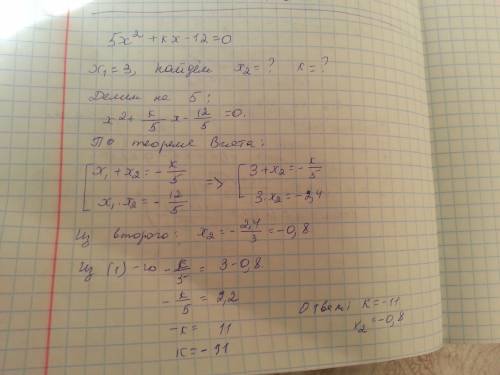 5x² + кx - 12 = 0
x₁ = 3, найдём x₂ = ? к = ?
Делим на 5:
x² + к/5 x - 12/5 = 0.
По теореме Виета:
[x₁ + x₂ = - к/5 => [3 + x₂ = - к/5
x₁ · x₂ = - 12/5 3·x₂ = -2,4
Из второго: x₂ = - 2,4/3 = -0,8
Из (1)-го - к/5 = 3 - 0,8.
- к/5 = 2,2
-к = 11
к = -11
Ответ: к = -11
x₂ = -0,8